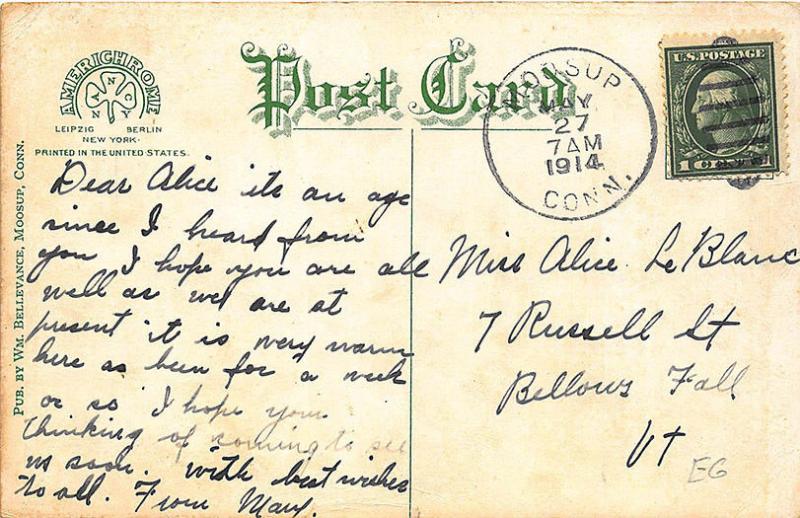 AMERICHROME
A N C Y N
LEIPZIG BERLIN
NEW YORK.
PRINTED IN THE UNITED STATES.
Post Card
MOOSUP
MAY
27
7AM
1914
CONN.
U.S. POSTAGE
1 CENT
PUB. BY WM. BELLEVANCE, MOOSUP, CONN.
Dear Alice its an age
since I heard from
you I hope you are all
well as we are at
present it is very warm
here as been for a week
or so I hope your
thinking of coming to see
us soon. with best wishes
to all. From Mary.
Miss Alice Le Blanc
7 Russell St
Bellows Fall
Vt
EG